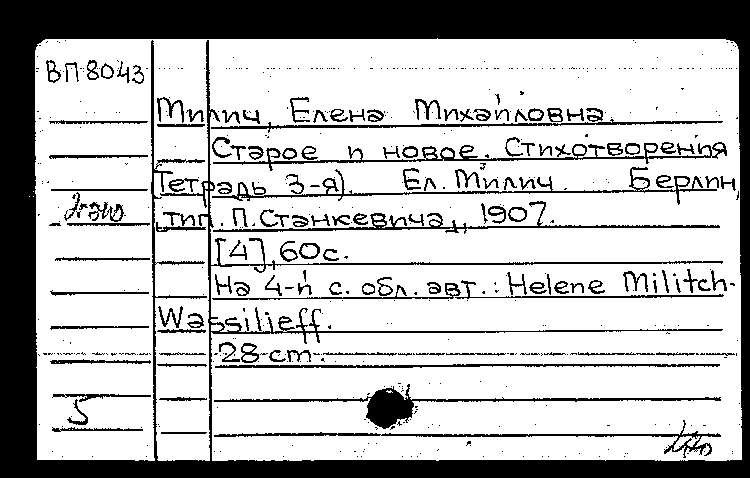 ВП8043
Милич, Елена Михайловна.
Старое и новое. Стихотворения
(Тетрадь 3-я). Ел. Милич. Берлин,
тип. П. Станкевича, 1907.
[4], 60 с.
На 4-й с. обл. авт.: Helene Militch-
Wassilieff.
28 cm.
5